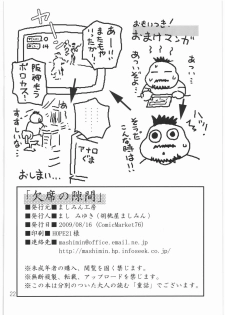 おもいつき!
おまけマンガ
あっ…
あっついぞ…
あっ…
ハッ!
そうだ
こんな時は!!
あーっ!!
またもや
いたかー!
0
14
阪神もう
ボロカス!
アナロ
グは
すずしいな…
おしまい…
「欠席の隙間」
■発行元■ましみん工房
■発行人■まし みゆき(胡桃屋ましみん)
■発行日■2009/08/16 (ComicMarket76)
■印刷■HOPE21様
■連絡先■mashimin@office.email.ne.jp
http://mashimin.hp.infoseek.co.jp/
※未成年者の購入、閲覧を固く禁じます。
※無断複製、転載、アップロードを禁じます。
※この本は分別のついた大人の読む「童話」でございます。
22